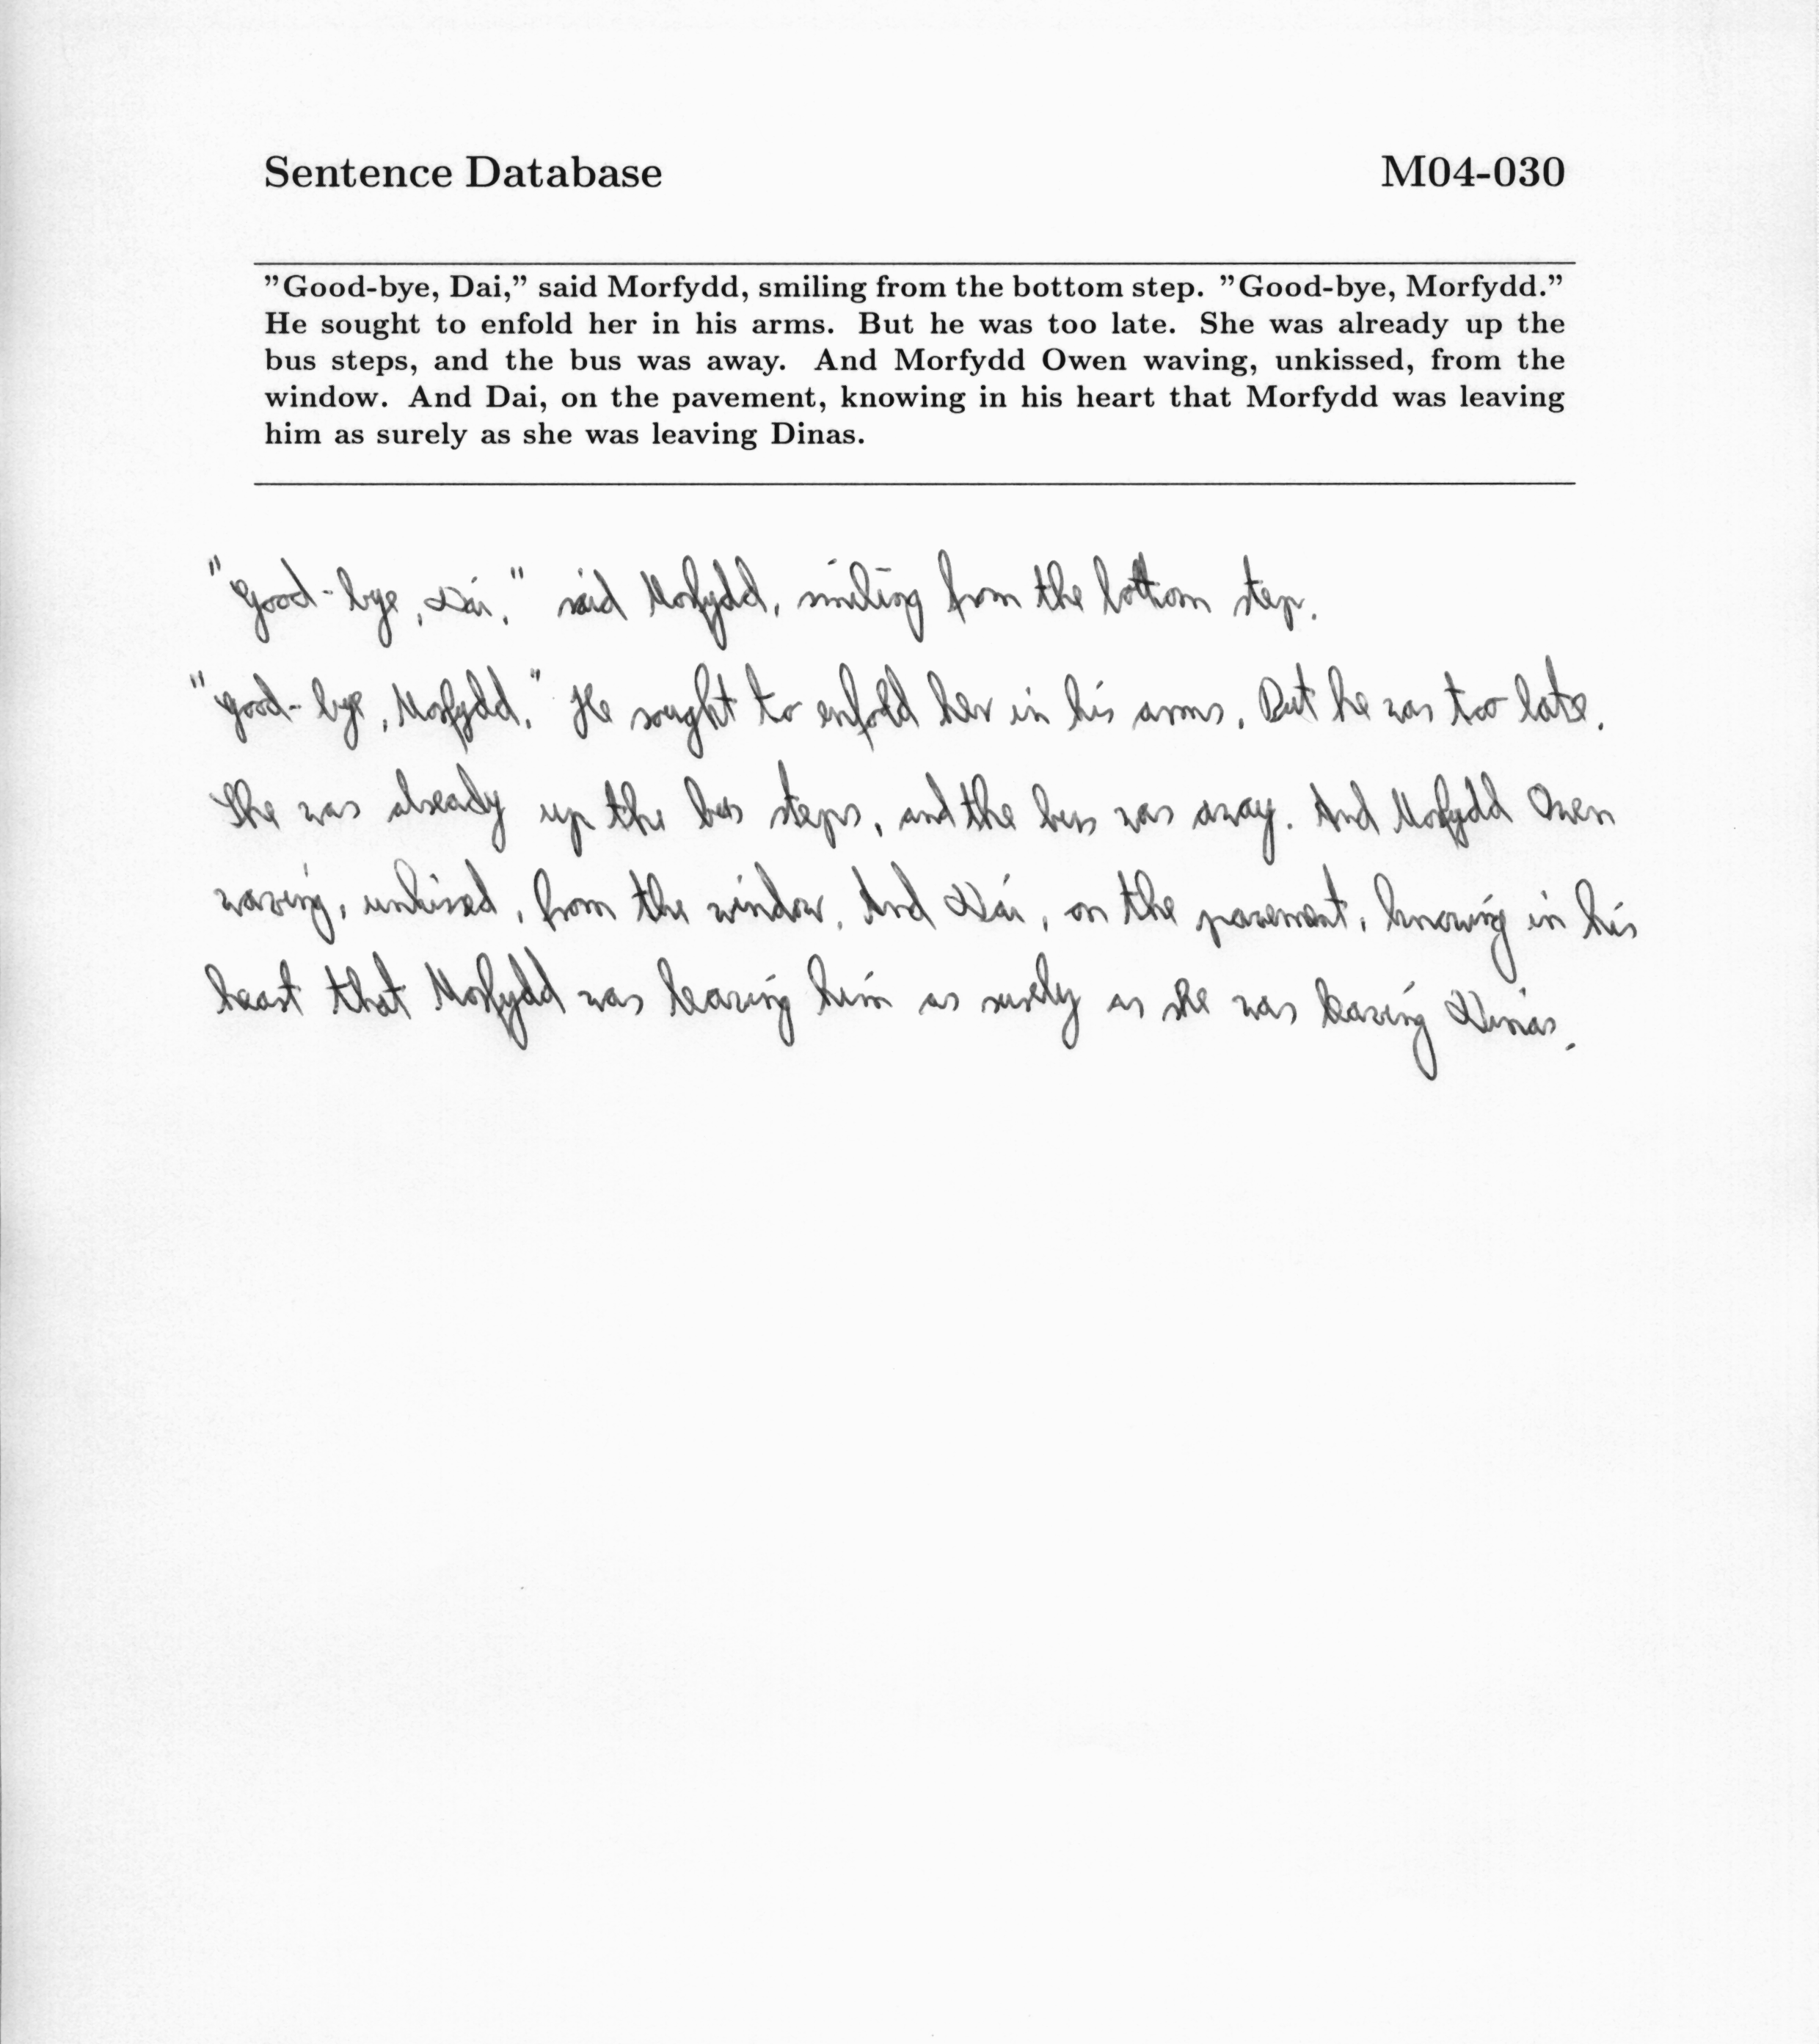 Sentence Database M04-030
"Good-bye, Dai," said Morfydd, smiling from the bottom step. "Good-bye, Morfydd."
He sought to enfold her in his arms. But he was too late. She was already up the
bus steps, and the bus was away. And Morfydd Owen waving, unkissed, from the
window. And Dai, on the pavement, knowing in his heart that Morfydd was leaving
him as surely as she was leaving Dinas.
"Good-bye, Dai," said Morfydd, smiling from the bottom step.
"Good-bye, Morfydd." He sought to enfold her in his arms. But he was too late.
She was already up the bus steps, and the bus was away. And Morfydd Owen
waving, unkissed, from the window. And Dai, on the pavement, knowing in his
heart that Morfydd was leaving him as surely as she was leaving Dinas.